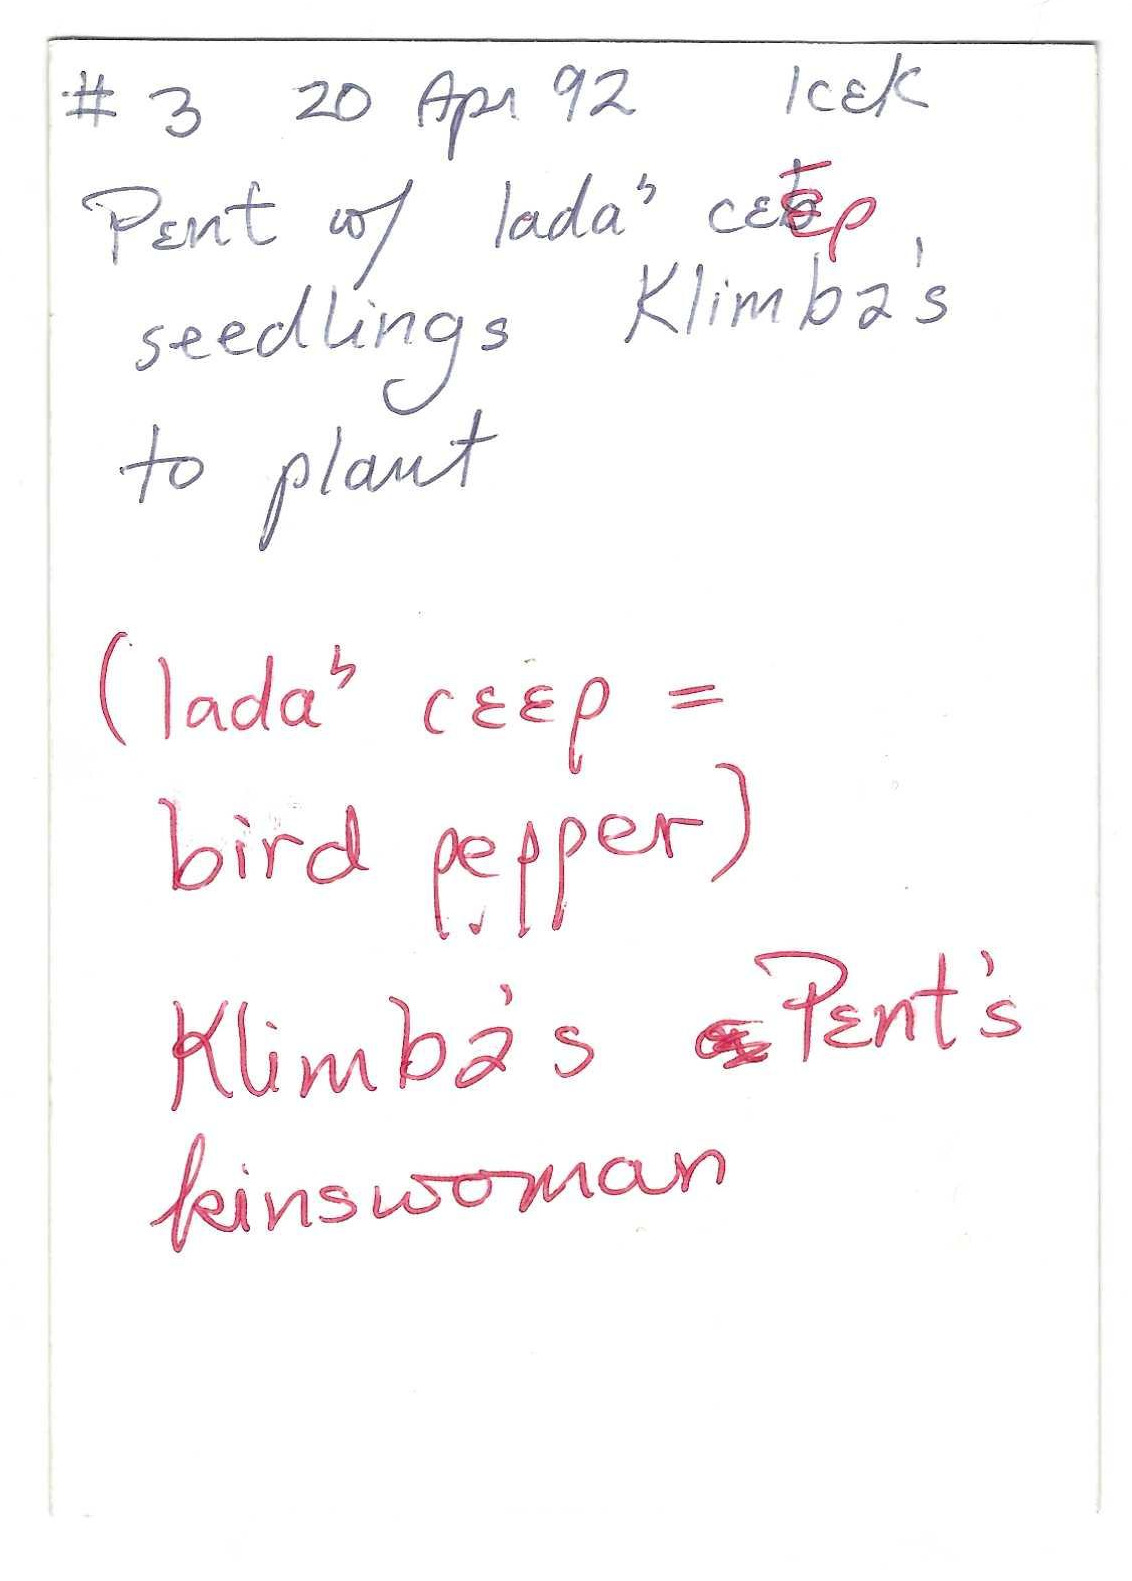 # 3 20 Apr 92 IcɛK
Pɛnt w/ ladaʾ cɛɛp
seedlings Klimbə's
to plant
(ladaʾ cɛɛp =
bird pepper)
Klimbə's Pɛnt's
kinswoman